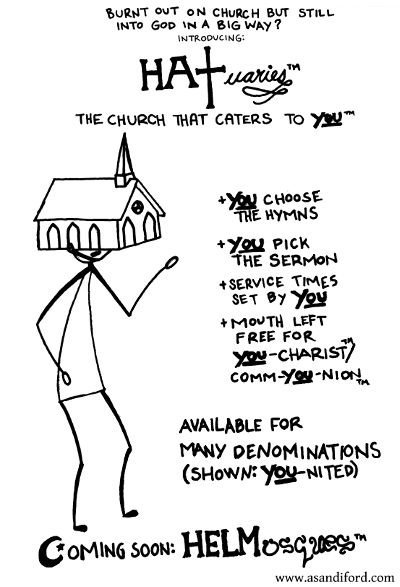 BURNT OUT ON CHURCH BUT STILL
INTO GOD IN A BIG WAY?
INTRODUCING:
HATuaries™
THE CHURCH THAT CATERS TO YOU™
+YOU CHOOSE
THE HYMNS
+YOU PICK
THE SERMON
+SERVICE TIMES
SET BY YOU
+MOUTH LEFT
FREE FOR
YOU-CHARIST™/
COMM-YOU-NION™
AVAILABLE FOR
MANY DENOMINATIONS
(SHOWN: YOU-NITED)
COMING SOON: HELMosques™
www.asandiford.com